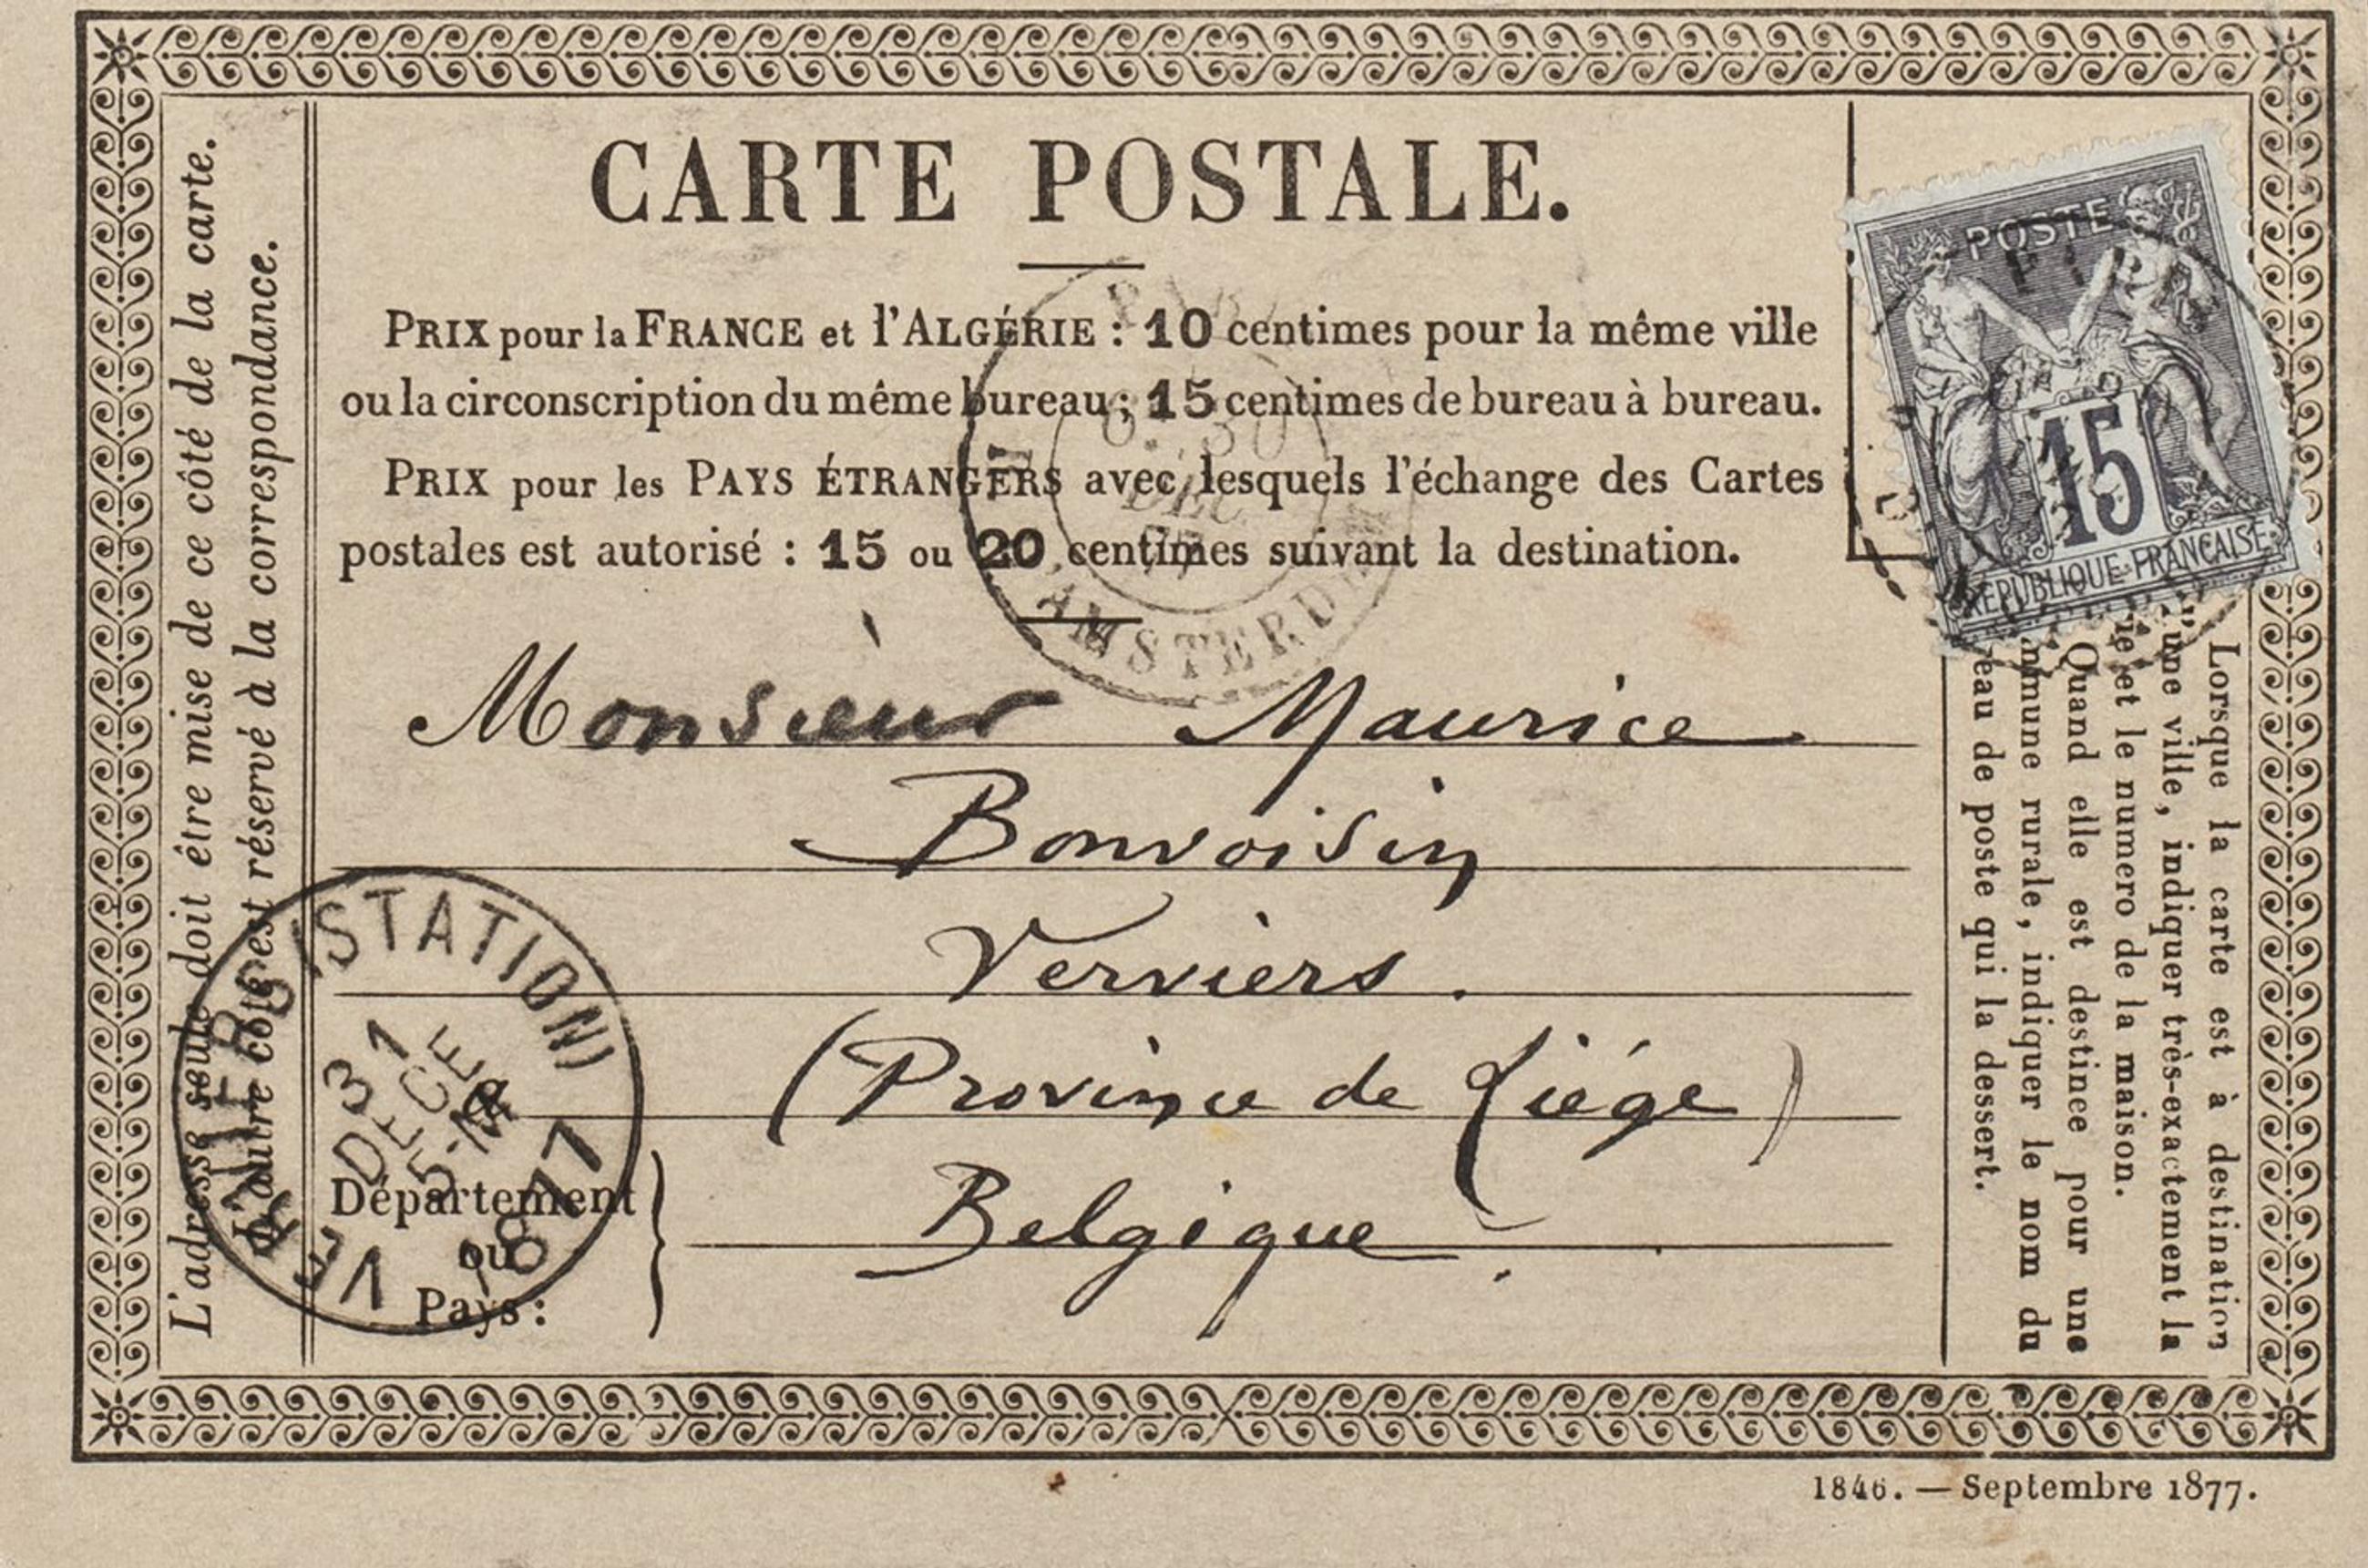 CARTE POSTALE.
PRIX pour la FRANCE et l'ALGÉRIE : 10 centimes pour la même ville
ou la circonscription du même bureau ; 15 centimes de bureau à bureau.
PRIX pour les PAYS ÉTRANGERS avec lesquels l'échange des Cartes
postales est autorisé : 15 ou 20 centimes suivant la destination.
Monsieur Maurice
Bonvoisin
Verviers.
(Province de Liége)
Belgique.
Département
ou
Pays :
L'adresse seule doit être mise de ce côté de la carte.
L'autre côté est réservé à la correspondance.
POSTE
15
REPUBLIQUE FRANÇAISE
Lorsque la carte est à destination
d'une ville, indiquer très-exactement la
et le numero de la maison.
Quand elle est destinee pour une
rurale, indiquer le nom du
de poste qui la dessert.
DEC
77
AMSTERDAM
VERVIERS (STATION)
31
DECE
5-M
1877
1846. — Septembre 1877.